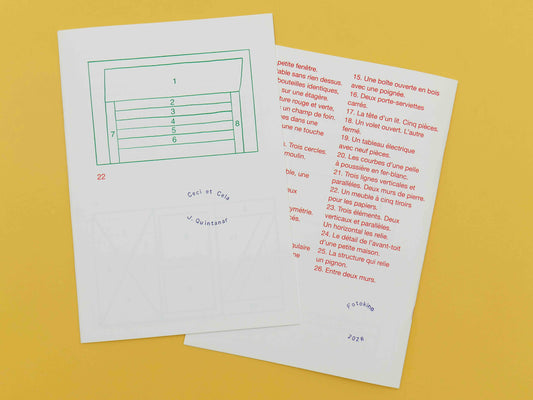 1
2
3
4
5
6
7
8
22
Ceci et Cela
J. Quintanar
petite fenêtre.
table sans rien dessus.
bouteilles identiques,
sur une étagère.
ture rouge et verte,
un champ de foin.
es dans une
une ne touche
. Trois cercles.
moulin.
able, une
eux
ymétrie.
cés.
gulaire
ne
15. Une boîte ouverte en bois
avec une poignée.
16. Deux porte-serviettes
carrés.
17. La tête d'un lit. Cinq pièces.
18. Un volet ouvert. L'autre
fermé.
19. Un tableau électrique
avec neuf pièces.
20. Les courbes d'une pelle
à poussière en fer-blanc.
21. Trois lignes verticales et
parallèles. Deux murs de pierre.
22. Un meuble à cinq tiroirs
pour les papiers.
23. Trois éléments. Deux
verticaux et parallèles.
Un horizontal les relie
24. Le détail de l'avant-toit
d'une petite maison.
25. La structure qui relie
un pignon.
26. Entre deux murs.
Fotokino